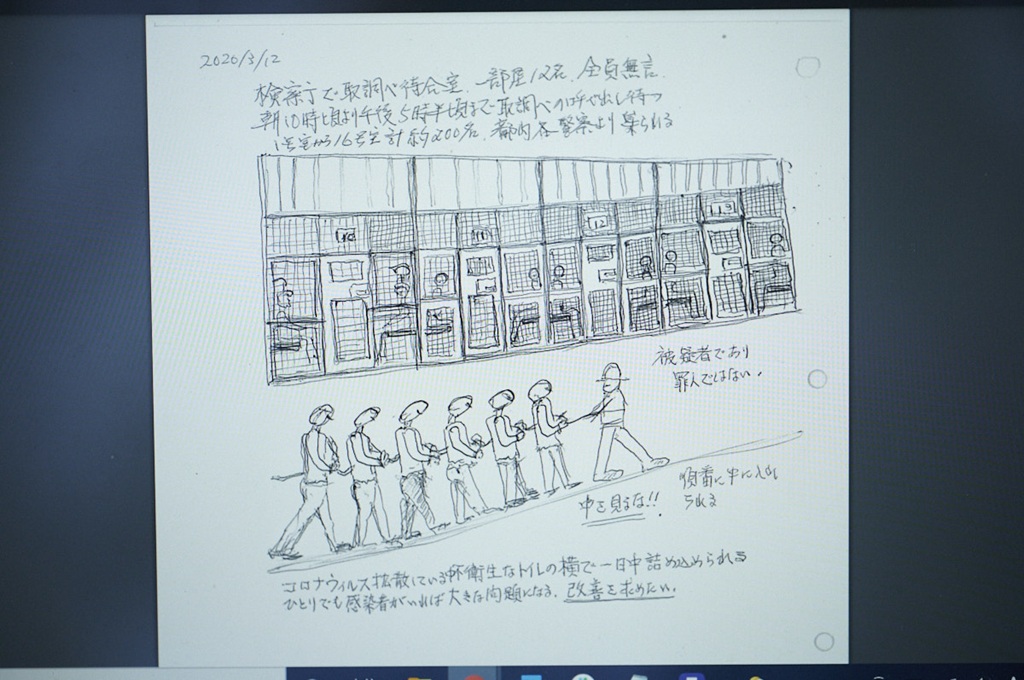 2020/3/12
検察庁で取調べ待合室、一部屋12名、全員無言、
朝10時頃より午後5時半頃まで取調べの呼び出し待つ
1号室から16号室計約200名、都内各警察より集られる
10
11
12
13
被疑者であり
罪人ではない。
順番に牢に入れ
られる
中を見るな!!
コロナウィルス拡散している不衛生なトイレの横で一日中詰め込められる
ひとりでも感染者がいれば大きな問題になる。改善を求めたい。